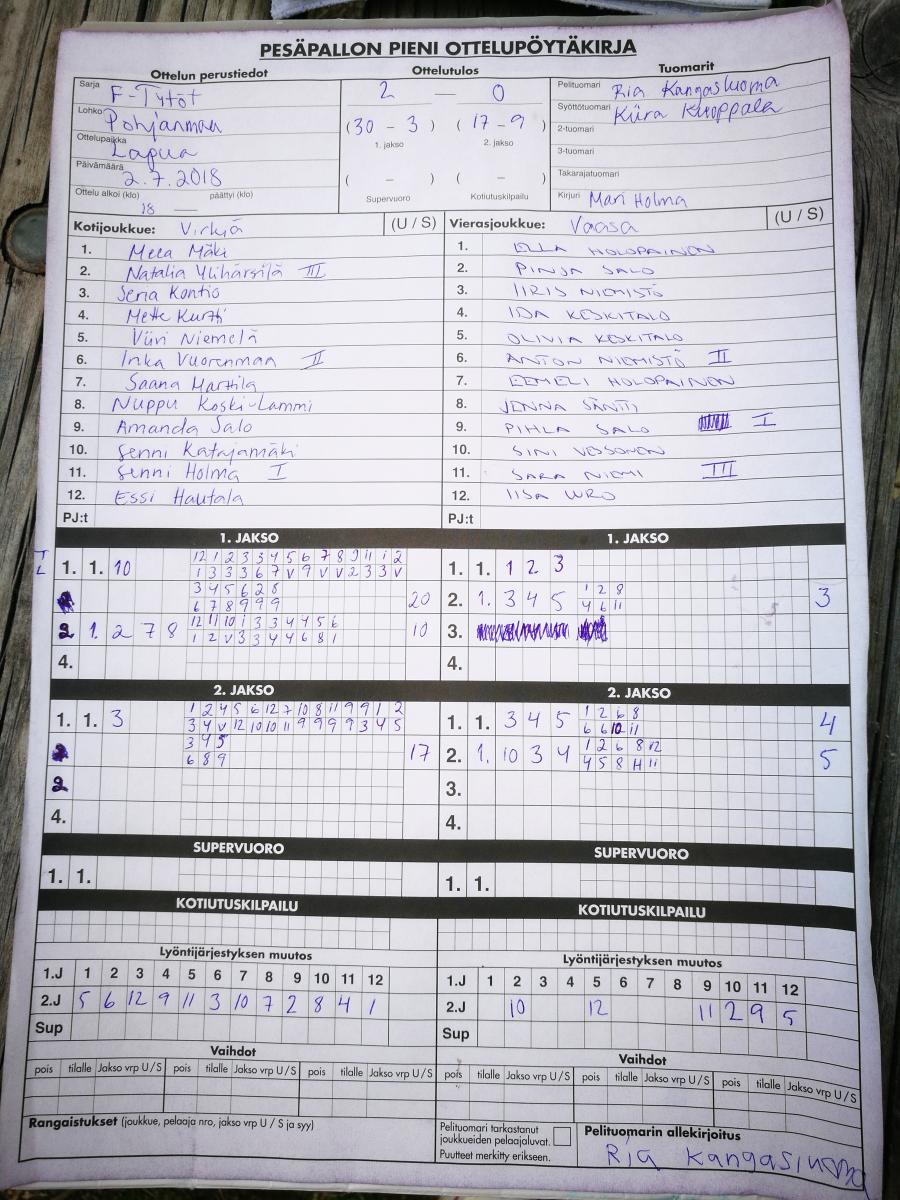 PESÄPALLON PIENI OTTELUPÖYTÄKIRJA
Ottelun perustiedot Ottelutulos Tuomarit
Sarja F-Tytöt 2 — 0 Pelituomari Ria Kangasluoma
Lohko Pohjanmaa (30 - 3) (17 - 9) Syöttötuomari Kiira Kuoppala
Ottelupaikka Lapua 1. jakso 2. jakso 2-tuomari
3-tuomari
Päivämäärä 2.7.2018 ( - ) ( - ) Takarajatuomari
Ottelu alkoi (klo) 18 — päättyi (klo) Supervuoro Kotiutuskilpailu Kirjuri Mari Holma
Kotijoukkue: Virkiä (U / S) Vierasjoukkue: Vaasa (U / S)
1. Meea Mäki 1. ELLA HOLOPAINEN
2. Natalia Ylihärsilä III 2. PINJA SALO
3. Senja Kontio 3. IIRIS NIEMISTÖ
4. Mette Kurtti 4. IDA KESKITALO
5. Viivi Niemelä 5. OLIVIA KESKITALO
6. Inka Vuorenmaa II 6. ANTON NIEMISTÖ II
7. Saana Marttila 7. EEMELI HOLOPAINEN
8. Nuppu Koski-Lammi 8. JENNA SÄNTTI
9. Amanda Salo 9. PIHLA SALO I
10. Senni Katajamäki 10. SINI VESSONEN
11. Senni Holma I 11. SARA NIEMI III
12. Essi Hautala 12. IISA
PJ:t PJ:t
1. JAKSO 1. JAKSO
1. 1. 10 12 1 2 3 3 4 5 6 7 8 9 11 1 2 1. 1. 1 2 3
1 3 3 3 6 7 V 9 V V 2 3 3 V
3 4 5 6 2 8 20 2. 1. 3 4 5 1 2 8 3
6 7 8 9 9 9 4 6 11
2 1. 2 7 8 12 11 10 1 3 3 4 4 5 6 10 3.
1 2 V 3 3 4 4 6 8 1
4. 4.
2. JAKSO 2. JAKSO
1. 1. 3 1 2 4 5 6 12 7 10 8 11 9 9 1 2 1. 1. 3 4 5 1 2 6 8 4
3 4 V 12 10 10 11 9 9 9 9 3 4 5 6 6 10 11
3 4 5 17 2. 1. 10 3 4 1 2 6 8 12 5
6 8 9 4 5 8 H 11
2 3.
4. 4.
SUPERVUORO SUPERVUORO
1. 1. 1. 1.
KOTIUTUSKILPAILU KOTIUTUSKILPAILU
Lyöntijärjestyksen muutos Lyöntijärjestyksen muutos
1.J 1 2 3 4 5 6 7 8 9 10 11 12 1.J 1 2 3 4 5 6 7 8 9 10 11 12
2.J 5 6 12 9 11 3 10 7 2 8 4 1 2.J 10 12 11 2 9 5
Sup Sup
Vaihdot Vaihdot
pois tilalle Jakso vrp U / S pois tilalle Jakso vrp U / S pois tilalle Jakso vrp U / S pois tilalle Jakso vrp U / S pois tilalle Jakso vrp U / S pois tilalle Jakso vrp U / S
Rangaistukset (joukkue, pelaaja nro, jakso vrp U / S ja syy) Pelituomari tarkastanut Pelituomarin allekirjoitus
joukkueiden pelaajaluvat.
Puutteet merkitty erikseen. Ria Kangasluoma